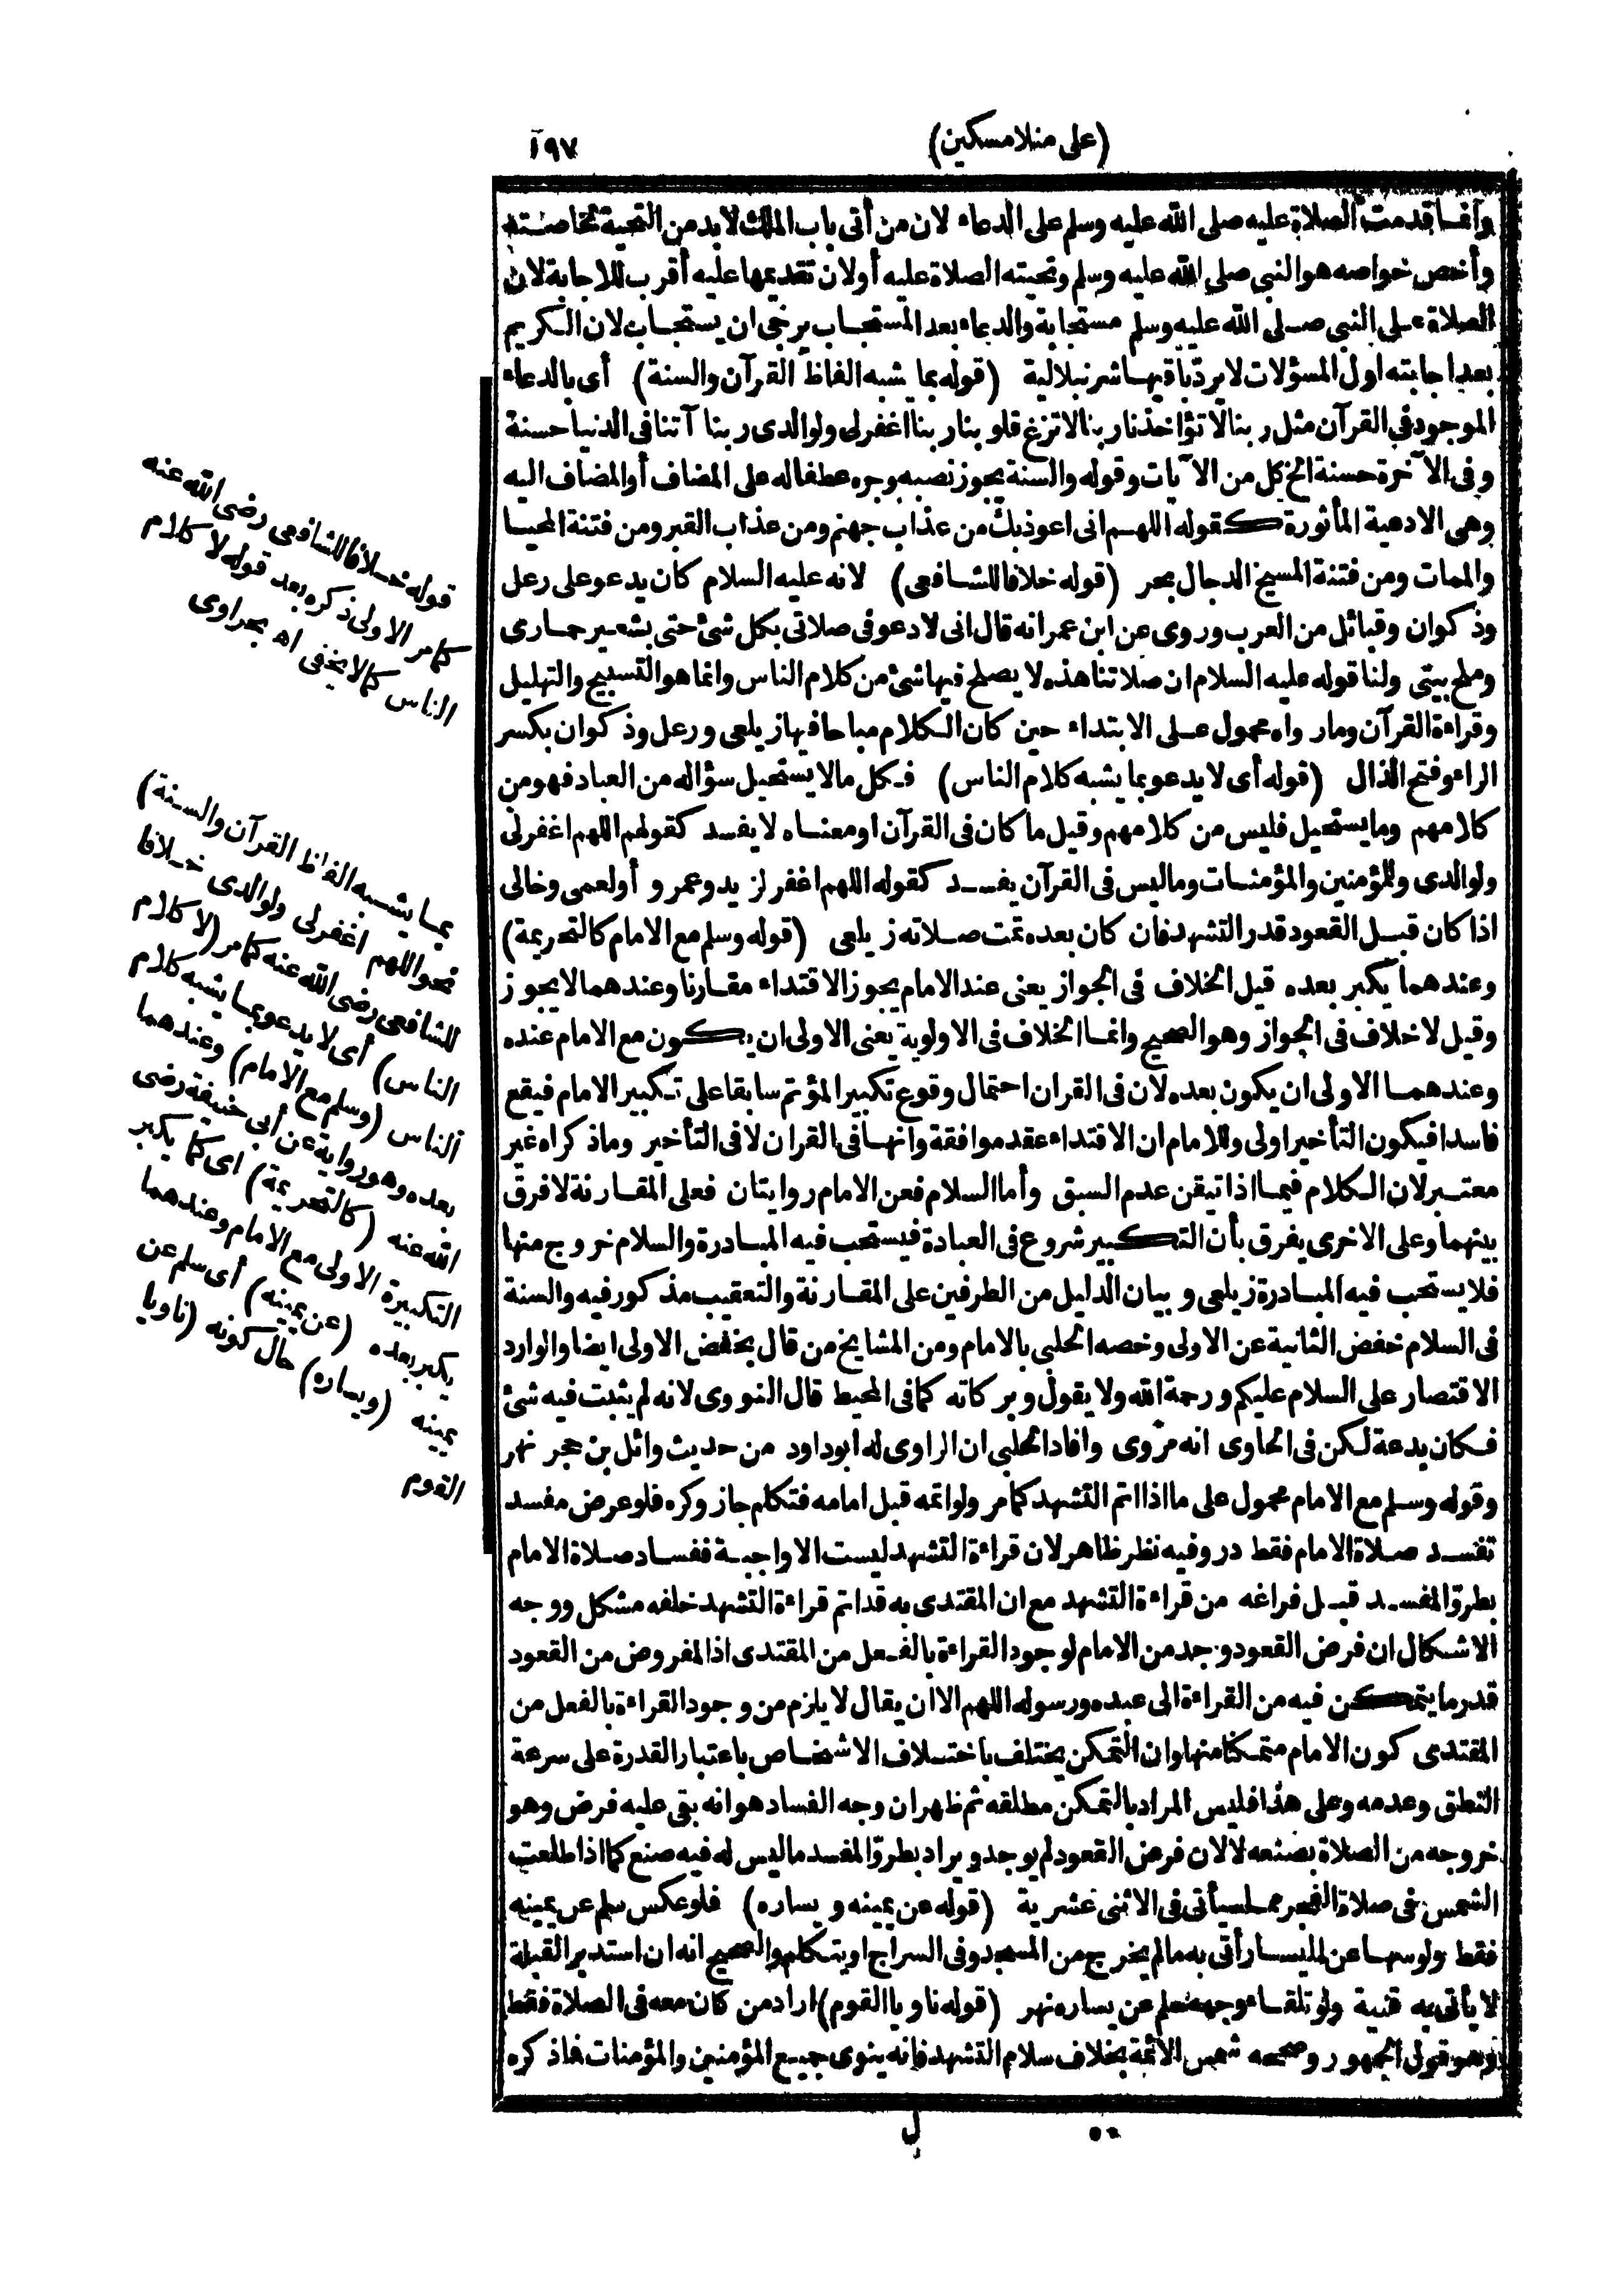 (على منلا مسكين) ١٩٧
وانما قدمت الصلاة عليه صلى الله عليه وسلم على الدعاء لان من أتى باب الملك لا بد من التحية لخاصته
وأخص خواصه هو النبي صلى الله عليه وسلم وتحيته الصلاة عليه أولان تقديمها عليه أقرب للاجابة لان
الصلاة على النبي صلى الله عليه وسلم مستجابة والدعاء بعد المستجاب يرجى ان يستجاب لان الكريم
بعد اجابته اول المسؤلات لا يردّ باقيها شرنبلالية (قوله بما يشبه الفاظ القرآن والسنة) أى بالدعاء
الموجود في القرآن مثل ربنا لا تؤاخذنا ربنا لا تزغ قلوبنا ربنا اغفر لى ولوالدى ربنا آتنا فى الدنيا حسنة
وفى الآخرة حسنة الخ كل من الآيات وقوله والسنة يجوز نصبه وجره عطفا له على المضاف أو المضاف اليه
وهى الادعية المأثورة كقوله اللهم انى اعوذ بك من عذاب جهنم ومن عذاب القبر ومن فتنة المحيا
والممات ومن فتنة المسيح الدجال بحر (قوله خلافا للشافعى) لانه عليه السلام كان يدعو على رعل
وذكوان وقبائل من العرب وروى عن ابن عمر انه قال انى لادعو فى صلاتى بكل شئ حتى بشعير حمارى
وملح بيتى ولنا قوله عليه السلام ان صلاتنا هذه لا يصلح فيها شئ من كلام الناس وانما هو التسبيح والتهليل
وقراءة القرآن وما رواه محمول على الابتداء حين كان الكلام مباحا فيها زيلعى ورعل وذكوان بكسر
الراء وفتح الذال (قوله أى لا يدعو بما يشبه كلام الناس) فكل ما لا يستحيل سؤاله من العباد فهو من
كلامهم وما يستحيل فليس من كلامهم وقيل ما كان فى القرآن او معناه لا يفسد كقولهم اللهم اغفر لى
ولوالدى وللمؤمنين والمؤمنات وما ليس فى القرآن يفسد كقوله اللهم اغفر لزيد وعمرو أو لعمى وخالى
اذا كان قبل القعود قدر التشهد فان كان بعده تمت صلاته زيلعى (قوله وسلم مع الامام كالتحريمة)
وعندهما يكبر بعده قيل الخلاف فى الجواز يعنى عند الامام يجوز الاقتداء مقارنا وعندهما لا يجوز
وقيل لا خلاف فى الجواز وهو الصحيح وانما الخلاف فى الاولوية يعنى الاولى ان يكون مع الامام عنده
وعندهما الاولى ان يكون بعده لان فى القران احتمال وقوع تكبير المؤتم سابقا على تكبير الامام فيقع
فاسدا فيكون التأخير اولى وللامام ان الاقتداء عقد موافقة وانها فى القران لا فى التأخير وما ذكراه غير
معتبر لان الكلام فيما اذا تيقن عدم السبق وأما السلام فعن الامام روايتان فعلى المقارنة لا فرق
بينهما وعلى الاخرى يفرق بأن التكبير شروع فى العبادة فيستحب فيه المبادرة والسلام خروج منها
فلا يستحب فيه المبادرة زيلعى وبيان الدليل من الطرفين على المقارنة والتعقيب مذكور فيه والسنة
فى السلام خفض الثانية عن الاولى وخصه الحلبى بالامام ومن المشايخ من قال بخفض الاولى ايضا والوارد
الاقتصار على السلام عليكم ورحمة الله ولا يقول وبركاته كما فى المحيط قال النووى لانه لم يثبت فيه شئ
فكان بدعة لكن فى الحاوى انه مروى وافاد الحلبى ان الراوى له ابو داود من حديث وائل بن حجر نهر
وقوله وسلم مع الامام محمول على ما اذا اتم التشهد كما مر ولو اتمه قبل امامه فتكلم جاز وكره فلو عرض مفسد
تفسد صلاة الامام فقط در وفيه نظر ظاهر لان قراءة التشهد ليست الا واجبة ففساد صلاة الامام
بطروّ المفسد قبل فراغه من قراءة التشهد مع ان المقتدى به قد اتم قراءة التشهد خلفه مشكل ووجه
الاشكال ان فرض القعود وجد من الامام لوجود القراءة بالفعل من المقتدى اذ المفروض من القعود
قدر ما يتمكن فيه من القراءة الى عبده ورسوله اللهم الا ان يقال لا يلزم من وجود القراءة بالفعل من
المقتدى كون الامام متمكنا منها وان التمكن يختلف باختلاف الاشخاص باعتبار القدرة على سرعة
النطق وعدمه وعلى هذا فليس المراد بالتمكن مطلقه ثم ظهر ان وجه الفساد هو انه بقى عليه فرض وهو
خروجه من الصلاة بصنعه لا لان فرض القعود لم يوجد ويراد بطروّ المفسد ما ليس له فيه صنع كما اذا طلعت
الشمس فى صلاة الفجر مما سيأتى فى الاثنى عشرية (قوله عن يمينه ويساره) فلو عكس سلم عن يمينه
فقط ولو سها عن اليسار أتى به ما لم يخرج من المسجد وفى السراج او يتكلم والصحيح انه ان استدبر القبلة
لا يأتى به قنية ولو تلقاء وجهه سلم عن يساره نهر (قوله ناويا القوم) اراد من كان معه فى الصلاة فقط
وهو قول الجمهور وصححه شمس الائمة بخلاف سلام التشهد فانه ينوى جميع المؤمنين والمؤمنات فما ذكره
٥٠ ل
قوله خلافا للشافعى رضى الله عنه
كما مر الاولى ذكره بعد قوله لا كلام
الناس كما لا يخفى اه بحراوى
بما يشبه الفاظ القرآن والسنة)
نحو اللهم اغفر لى ولوالدى خلافا
للشافعى رضى الله عنه كما مر (لا كلام
الناس) أى لا يدعو بما يشبه كلام
الناس (وسلم مع الامام) وعندهما
بعده وهو رواية عن أبى حنيفة رضى
الله عنه (كالتحريمة) اى كما يكبر
التكبيرة الاولى مع الامام وعندهما
يكبر بعده (عن يمينه) أى سلم عن
يمينه (ويساره) حال كونه (ناويا
القوم